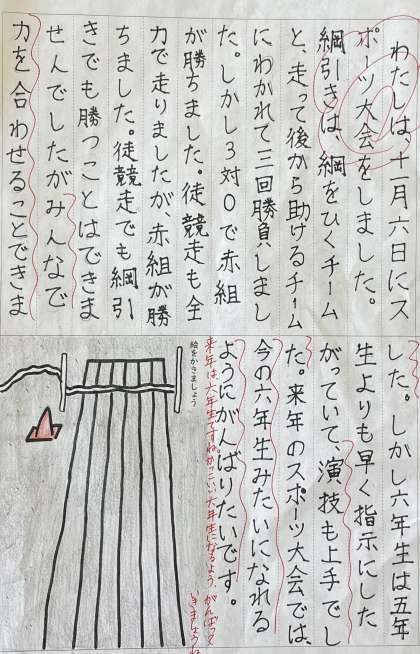 わたしは、十一月六日にス
ポーツ大会をしました。
綱引きは、綱をひくチーム
と、走って後から助けるチーム
にわかれて三回勝負しまし
た。しかし3対0で赤組
が勝ちました。徒競走も全
力で走りましたが、赤組が勝
ちました。徒競走でも綱引
きでも勝つことはできま
せんでしたがみんなで
力を合わせることできま
した。しかし六年生は五年
生よりも早く指示にした
がっていて、演技も上手でし
た。来年のスポーツ大会では、
今の六年生みたいになれる
ようにがんばりたいです。
来年は六年生ですね。かっこいい六年生になるよう がんばって
いきましょうね
絵をかきましょう